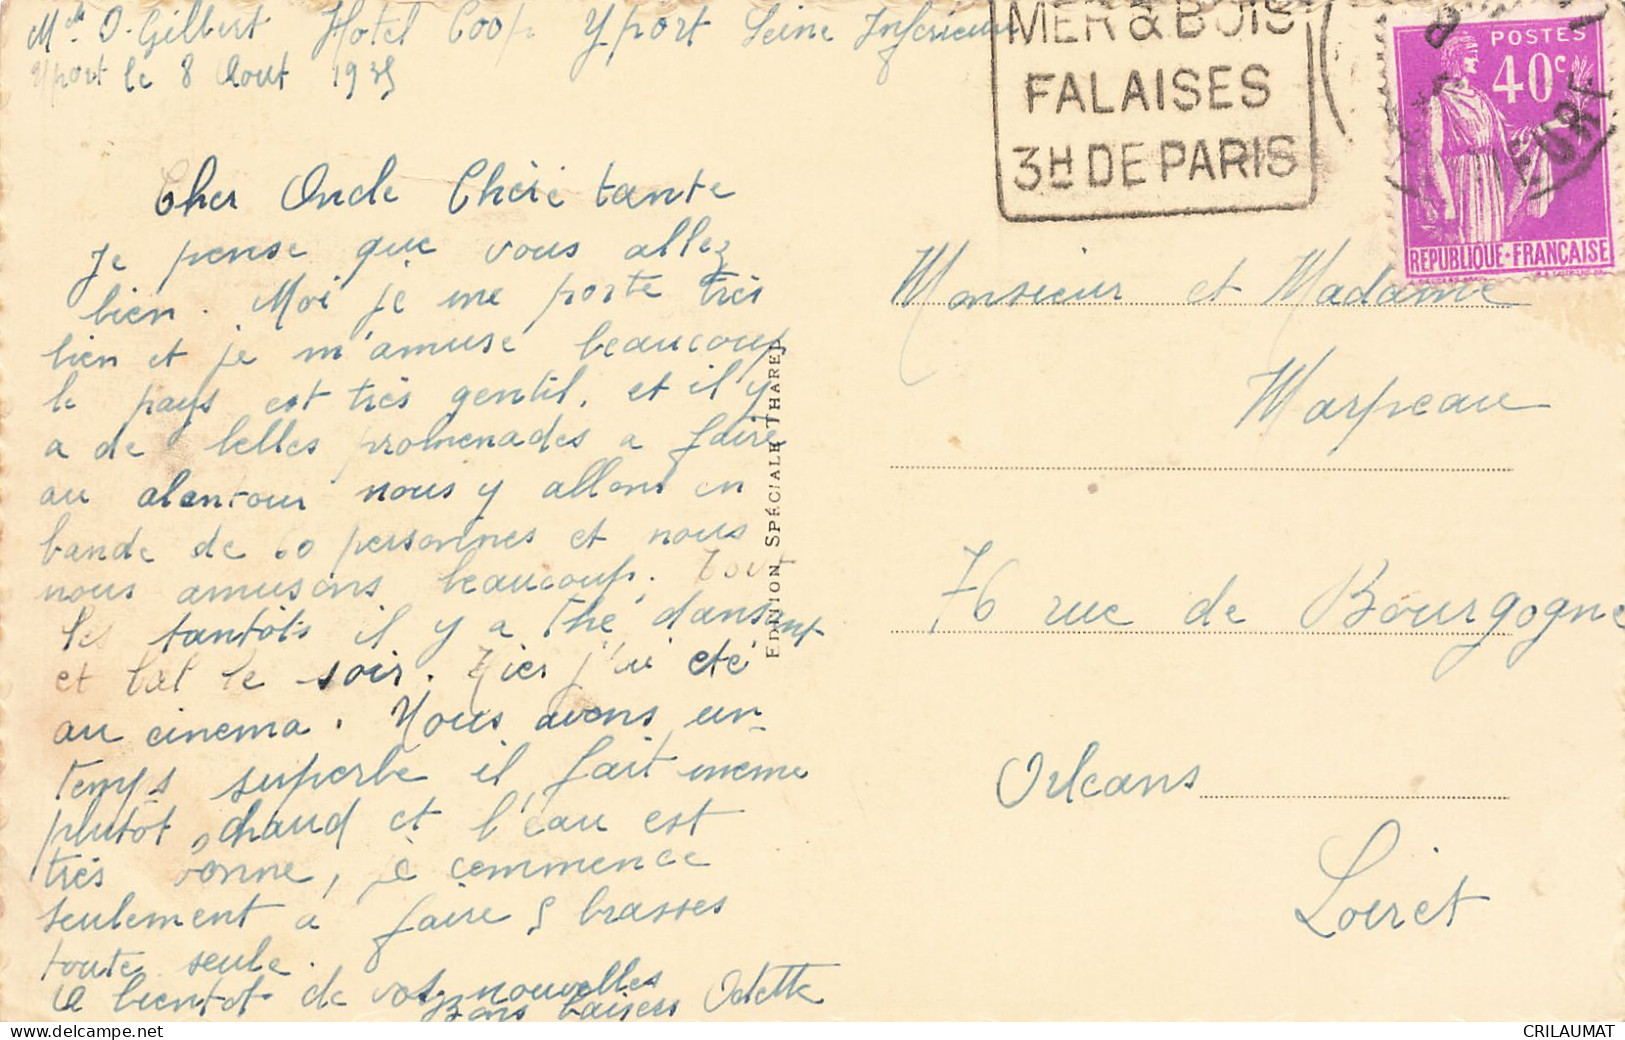 Mlle O. Gilbert Hotel Coop Yport Seine Inférieure
Yport le 8 Aout 1935
Cher Oncle Chère tante
Je pense que vous allez
bien. Moi je me porte très
bien et je m'amuse beaucoup
le pays est très gentil, et il y
a de belles promenades a faire
au alentour nous y allons en
bande de 60 personnes et nous
nous amusons beaucoup. Tout
les tantôts il y a Thé dansant
et bal le soir. Hier j'ai été
au cinema. Nous avons un
temps superbe il fait meme
plutôt chaud et l'eau est
très bonne, je commence
seulement à faire 5 brasses
toute seule.
A bientôt de vos nouvelles
Bons baisers Odette
EDITION SPÉCIALE THAREL
MER & BOIS
FALAISES
3H DE PARIS
POSTES
40c
REPUBLIQUE-FRANÇAISE
Monsieur et Madame
Marpeau
76 rue de Bourgogne
Orleans
Loiret
CRILAUMAT